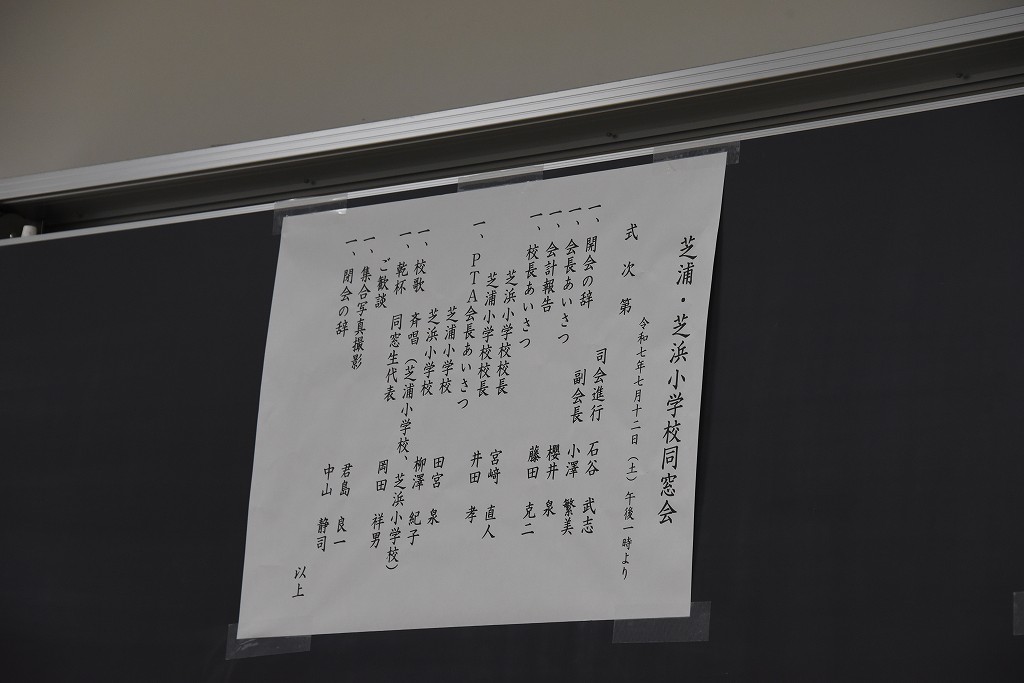 芝浦・芝浜小学校同窓会
令和七年七月十二日(土)午後一時より
式次第
司会進行 石谷 武志
一、開会の辞 副会長 小澤 繁美
一、会長あいさつ 櫻井 泉
一、会計報告 藤田 克二
一、校長あいさつ
芝浜小学校校長 宮﨑 直人
芝浦小学校校長 井田 孝
一、PTA会長あいさつ
芝浦小学校 田宮 泉
芝浜小学校 柳澤 紀子
一、校歌 斉唱(芝浦小学校、芝浜小学校)
一、乾杯 同窓生代表 岡田 祥男
ご歓談
一、集合写真撮影 君島 良一
一、閉会の辞 中山 静司
以上